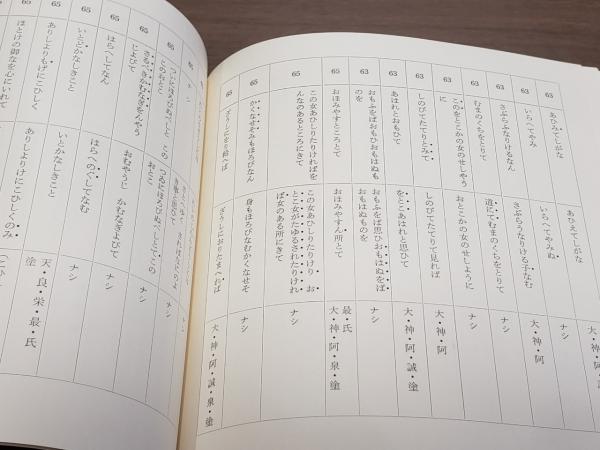 63
あひみてしがな
あひえてしがな
63
いらへてやみ
いらへてやみぬ
ナシ
63
さぶらふなりけるなん
さぶらうなりける子なむ
大・神・阿
63
むまのくちをとりて
道にてむまのくちをとりて
ナシ
63
このをとこかの女のせしやう
に
おとこかの女のせしように
ナシ
63
しのびてたてりとみて
しのびてたてりて見れば
大・神・阿
63
あはれとおもひて
をとこあはれと思ひて
大・神・阿・誠・塗
63
おもふをばおもひおもはぬも
のを
おもふをば思ひおもはぬをば
おもはぬものを
ナシ
65
おほみやすところとて
おほみやすん所とて
最・氏
大・神・阿・泉・塗
65
この女あひしりたりければを
んなのあるところにきて
この女あひしりたりけり お
とこ女がたゆるされたりけれ
ば女のある所にきて
ナシ
65
かくなせそみもほろびなん
身もほろびなむかくなせそ
ナシ
65
ざうしにをり給へば
ざうしにおりたまへれば
大・神・阿・誠・泉・塗
65
ナシ
65
つゐにほろびぬべしとて この
おとこ
ナシ
65
さるべきかむなぎをんやう
じよびて
おむやうじ かむなぎよびて
ナシ
65
はらへしてなん
はらへのぐしてなむ
ナシ
65
いとどかなしきこと
いとかなしきこと
ナシ
65
ありしよりもげにこひしく
ありしよりけにこひしくのみ
天・良・栄・最・氏
塗
ほとけの御なを心にいれて